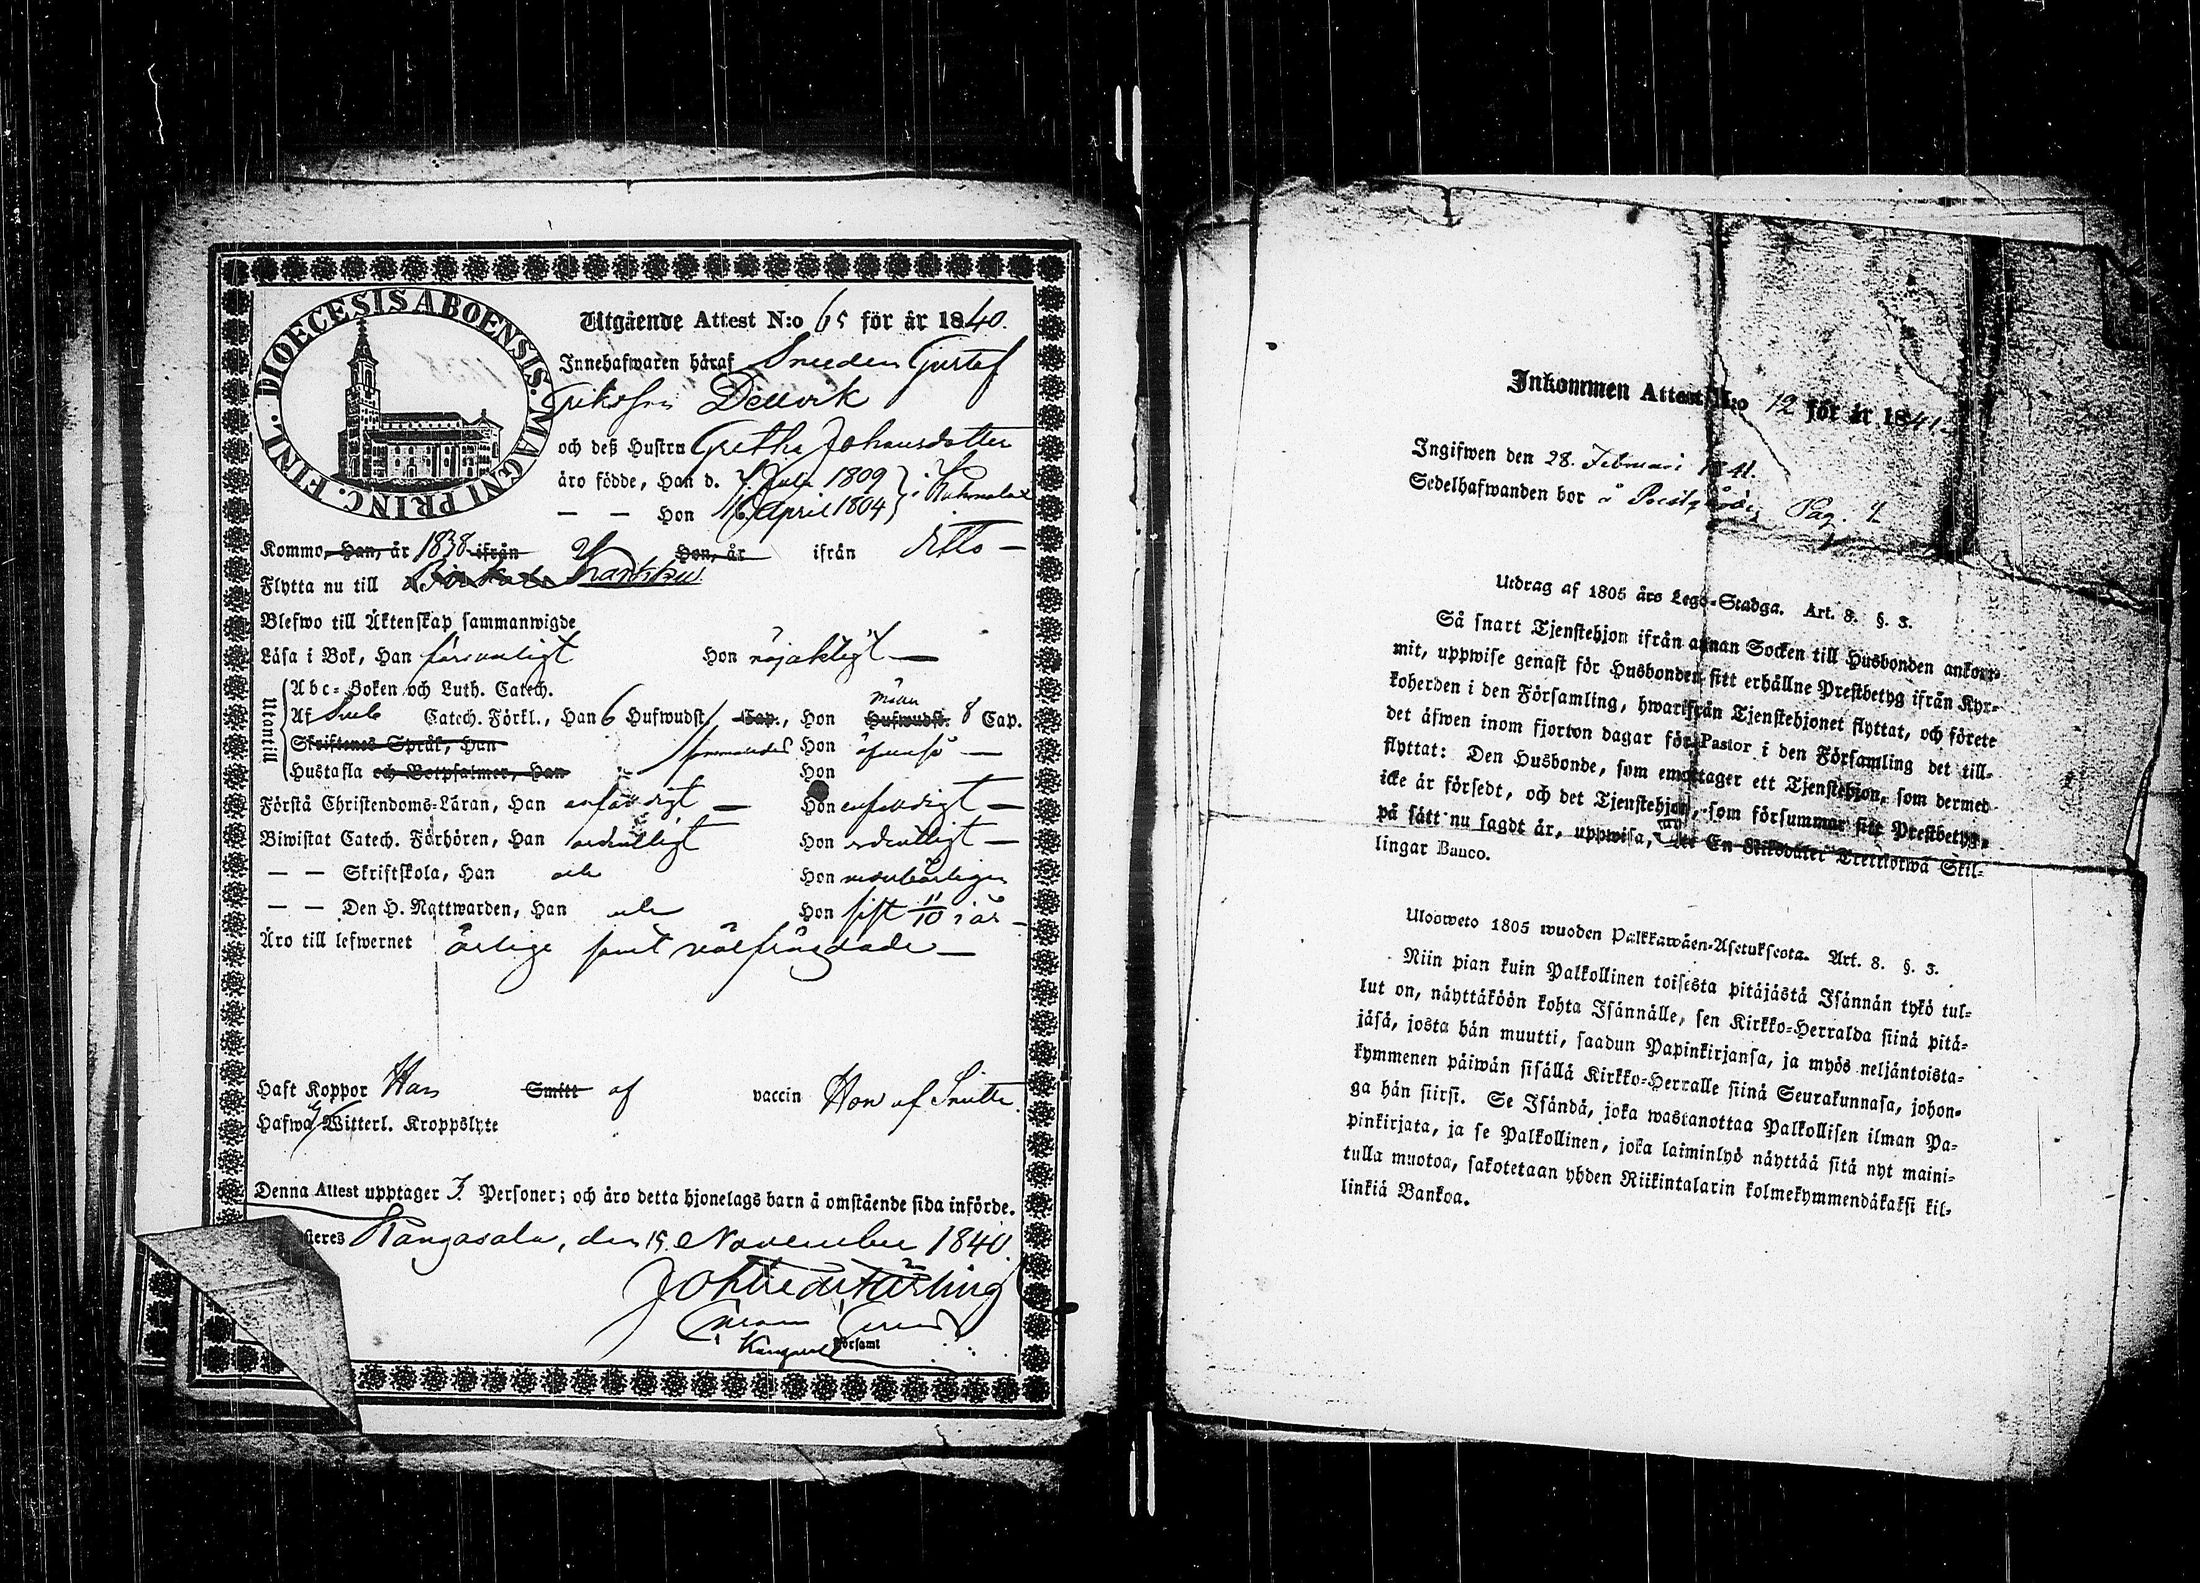 DIOECESIS ABOENSIS. MAGNI PRINC. FINL.
Utgående Attest N:o 65 för år 1840.
Innehafwaren häraf Smeden Gustaf
Eriksson Dellvik
och deß Hustru Gretha Johansdotter
äro födde, Han d. 4 Juli 1809
— — Hon 16 April 1804
Kommo, Han, år 1838 ifrån Hon, år ifrån ditto —
Flytta nu till
Blefwo till Äktenskap sammanwigde
Läsa i Bok, Han försvarligt Hon nöjaktigt —
Utantill
Abc-Boken och Luth. Catech.
Af Sveb. Catech. Förkl., Han 6 Hufwudst. Cap., Hon Hufwudst. 8 Cap.
Skriftenes Språk, Han Hon
Hustafla och Botpsalmer, Han Hon
Förstå Christendoms-Läran, Han enfaldigt — Hon enfaldigt —
Biwistat Catech. Förhören, Han ordentligt Hon ordentligt —
— — Skriftskola, Han och Hon
— — Den H. Nattwarden, Han och Hon sist 11/10 i år —
Äro till lefwernet ärlige samt välfrägdade —
Haft Koppor Han Smitt af vaccin Hon af Smitta.
Hafwa Witterl. Kroppslyte
Denna Attest upptager 3 Personer; och äro detta hjonelags barn å omstående sida införde.
steres Kangasala, den 15 November 1840.
Församl
Inkommen Attest N:o 12 för år 1841.
Ingifwen den 28. Februari 1841.
Sedelhafwanden bor Pag.
Utdrag af 1805 års Lego-Stadga. Art. 8. §. 3.
Så snart Tjenstehjon ifrån annan Socken till Husbonden ankom-
mit, uppwise genast för Husbonden sitt erhållne Prestbetyg ifrån Kyr-
koherden i den Församling, hwarifrån Tjenstehjonet flyttat, och förete
det äfwen inom fjorton dagar för Pastor i den Församling det till-
flyttat: Den Husbonde, som emottager ett Tjenstehjon, som dermed
icke är försedt, och det Tjenstehjon, som försummar sitt Prestbetyg,
på sätt nu sagdt är, uppwisa, En Riksdaler Trettiotwå Skil-
lingar Banco.
Ulosweto 1805 wuoden Palkkawäen-Asetuksesta. Art. 8. §. 3.
Niin pian kuin Palkollinen toisesta pitäjästä Isännän tykö tul-
lut on, näyttäköön kohta Isännälle, sen Kirkko-Herralda siinä pitä-
jäsä, josta hän muutti, saadun Papinkirjansa, ja myös neljäntoista-
kymmenen päiwän sisällä Kirkko-Herralle siinä Seurakunnasa, johon-
ga hän siirsi. Se Isändä, joka wastanottaa Palkollisen ilman Pa-
pinkirjata, ja se Palkollinen, joka laiminlyö näyttää sitä nyt maini-
tulla muotoa, sakotetaan yhden Riikintalarin kolmekymmendäkaksi kil-
linkiä Bankoa.